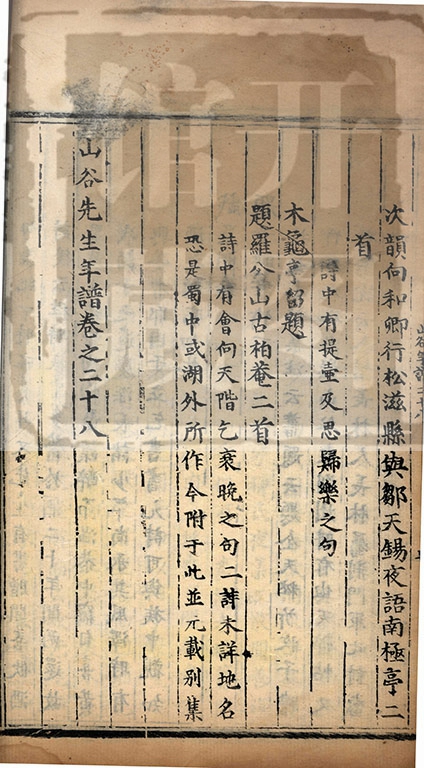 次韻向和卿行松滋縣與鄒天錫夜語南極亭二
首
詩中有提壺及思歸樂之句
木龜亭留題
題羅公山古柏菴二首
詩中有會向天階乞衰晚之句二詩未詳地名
恐是蜀中或湖外所作今附于此並元載別集
山谷先生年譜卷之二十八